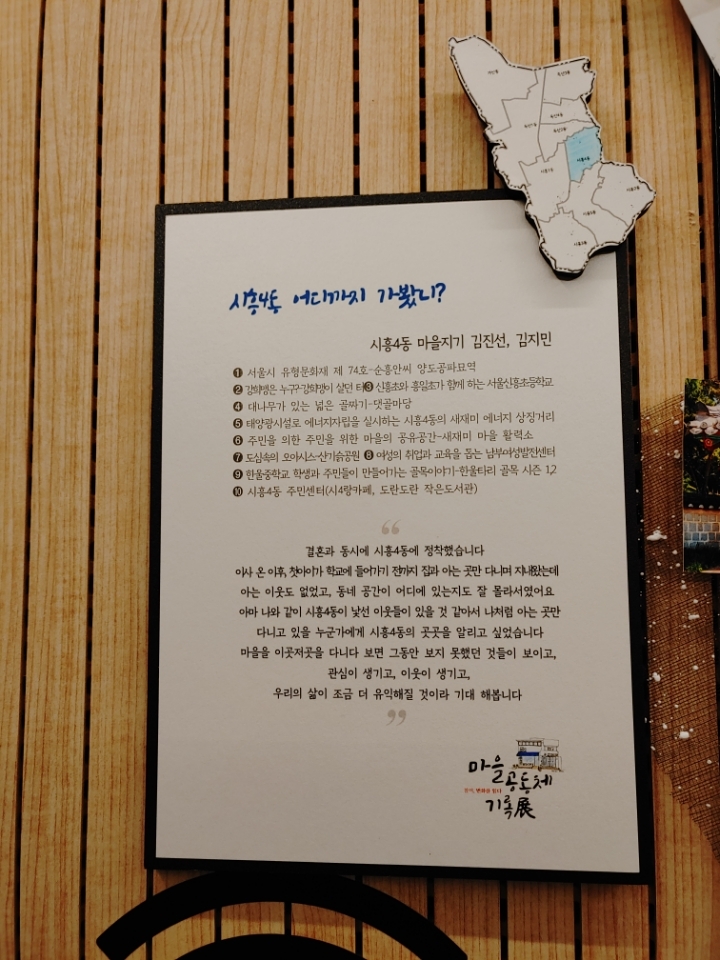 시흥4동 어디까지 가봤니?
시흥4동 마을지기 김진선, 김지민
❶ 서울시 유형문화재 제 74호-순흥안씨 양도공파묘역
❷ 강희맹은 누구?-강희맹이 살던 터 ❸ 신흥초와 흥일초가 함께 하는 서울신흥초등학교
❹ 대나무가 있는 넓은 골짜기-댓골마당
❺ 태양광시설로 에너지자립을 실시하는 시흥4동의 새재미 에너지 상징거리
❻ 주민을 의한 주민을 위한 마을의 공유공간-새재미 마을 활력소
❼ 도심속의 오아시스-산기슭공원 ❽ 여성의 취업과 교육을 돕는 남부여성발전센터
❾ 한울중학교 학생과 주민들이 만들어가는 골목이야기-한울타리 골목 시즌 1,2
❿ 시흥4동 주민센터(시4랑카페, 도란도란 작은도서관)
“
결혼과 동시에 시흥4동에 정착했습니다
이사 온 이후, 첫아이가 학교에 들어가기 전까지 집과 아는 곳만 다니며 지내왔는데
아는 이웃도 없었고, 동네 공간이 어디에 있는지도 잘 몰라서였어요
아마 나와 같이 시흥4동이 낯선 이웃들이 있을 것 같아서 나처럼 아는 곳만
다니고 있을 누군가에게 시흥4동의 곳곳을 알리고 싶었습니다
마을을 이곳저곳을 다니다 보면 그동안 보지 못했던 것들이 보이고,
관심이 생기고, 이웃이 생기고,
우리의 삶이 조금 더 유익해질 것이라 기대 해봅니다
”
마을
공동체
기록展
시흥4동